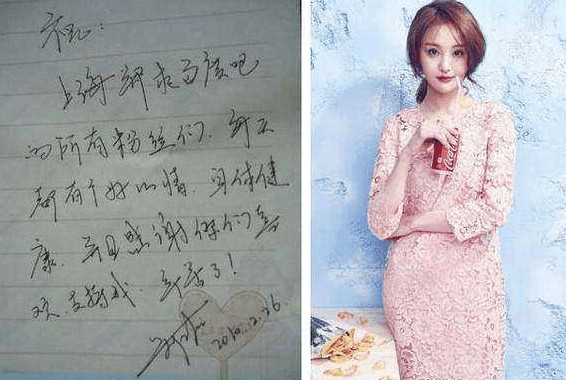 祝:
上海 百度吧
的所有粉丝们,每天
都有个好心情,身体健
康,并且感谢你们喜
欢支持我,辛苦了!
2010.2.26.